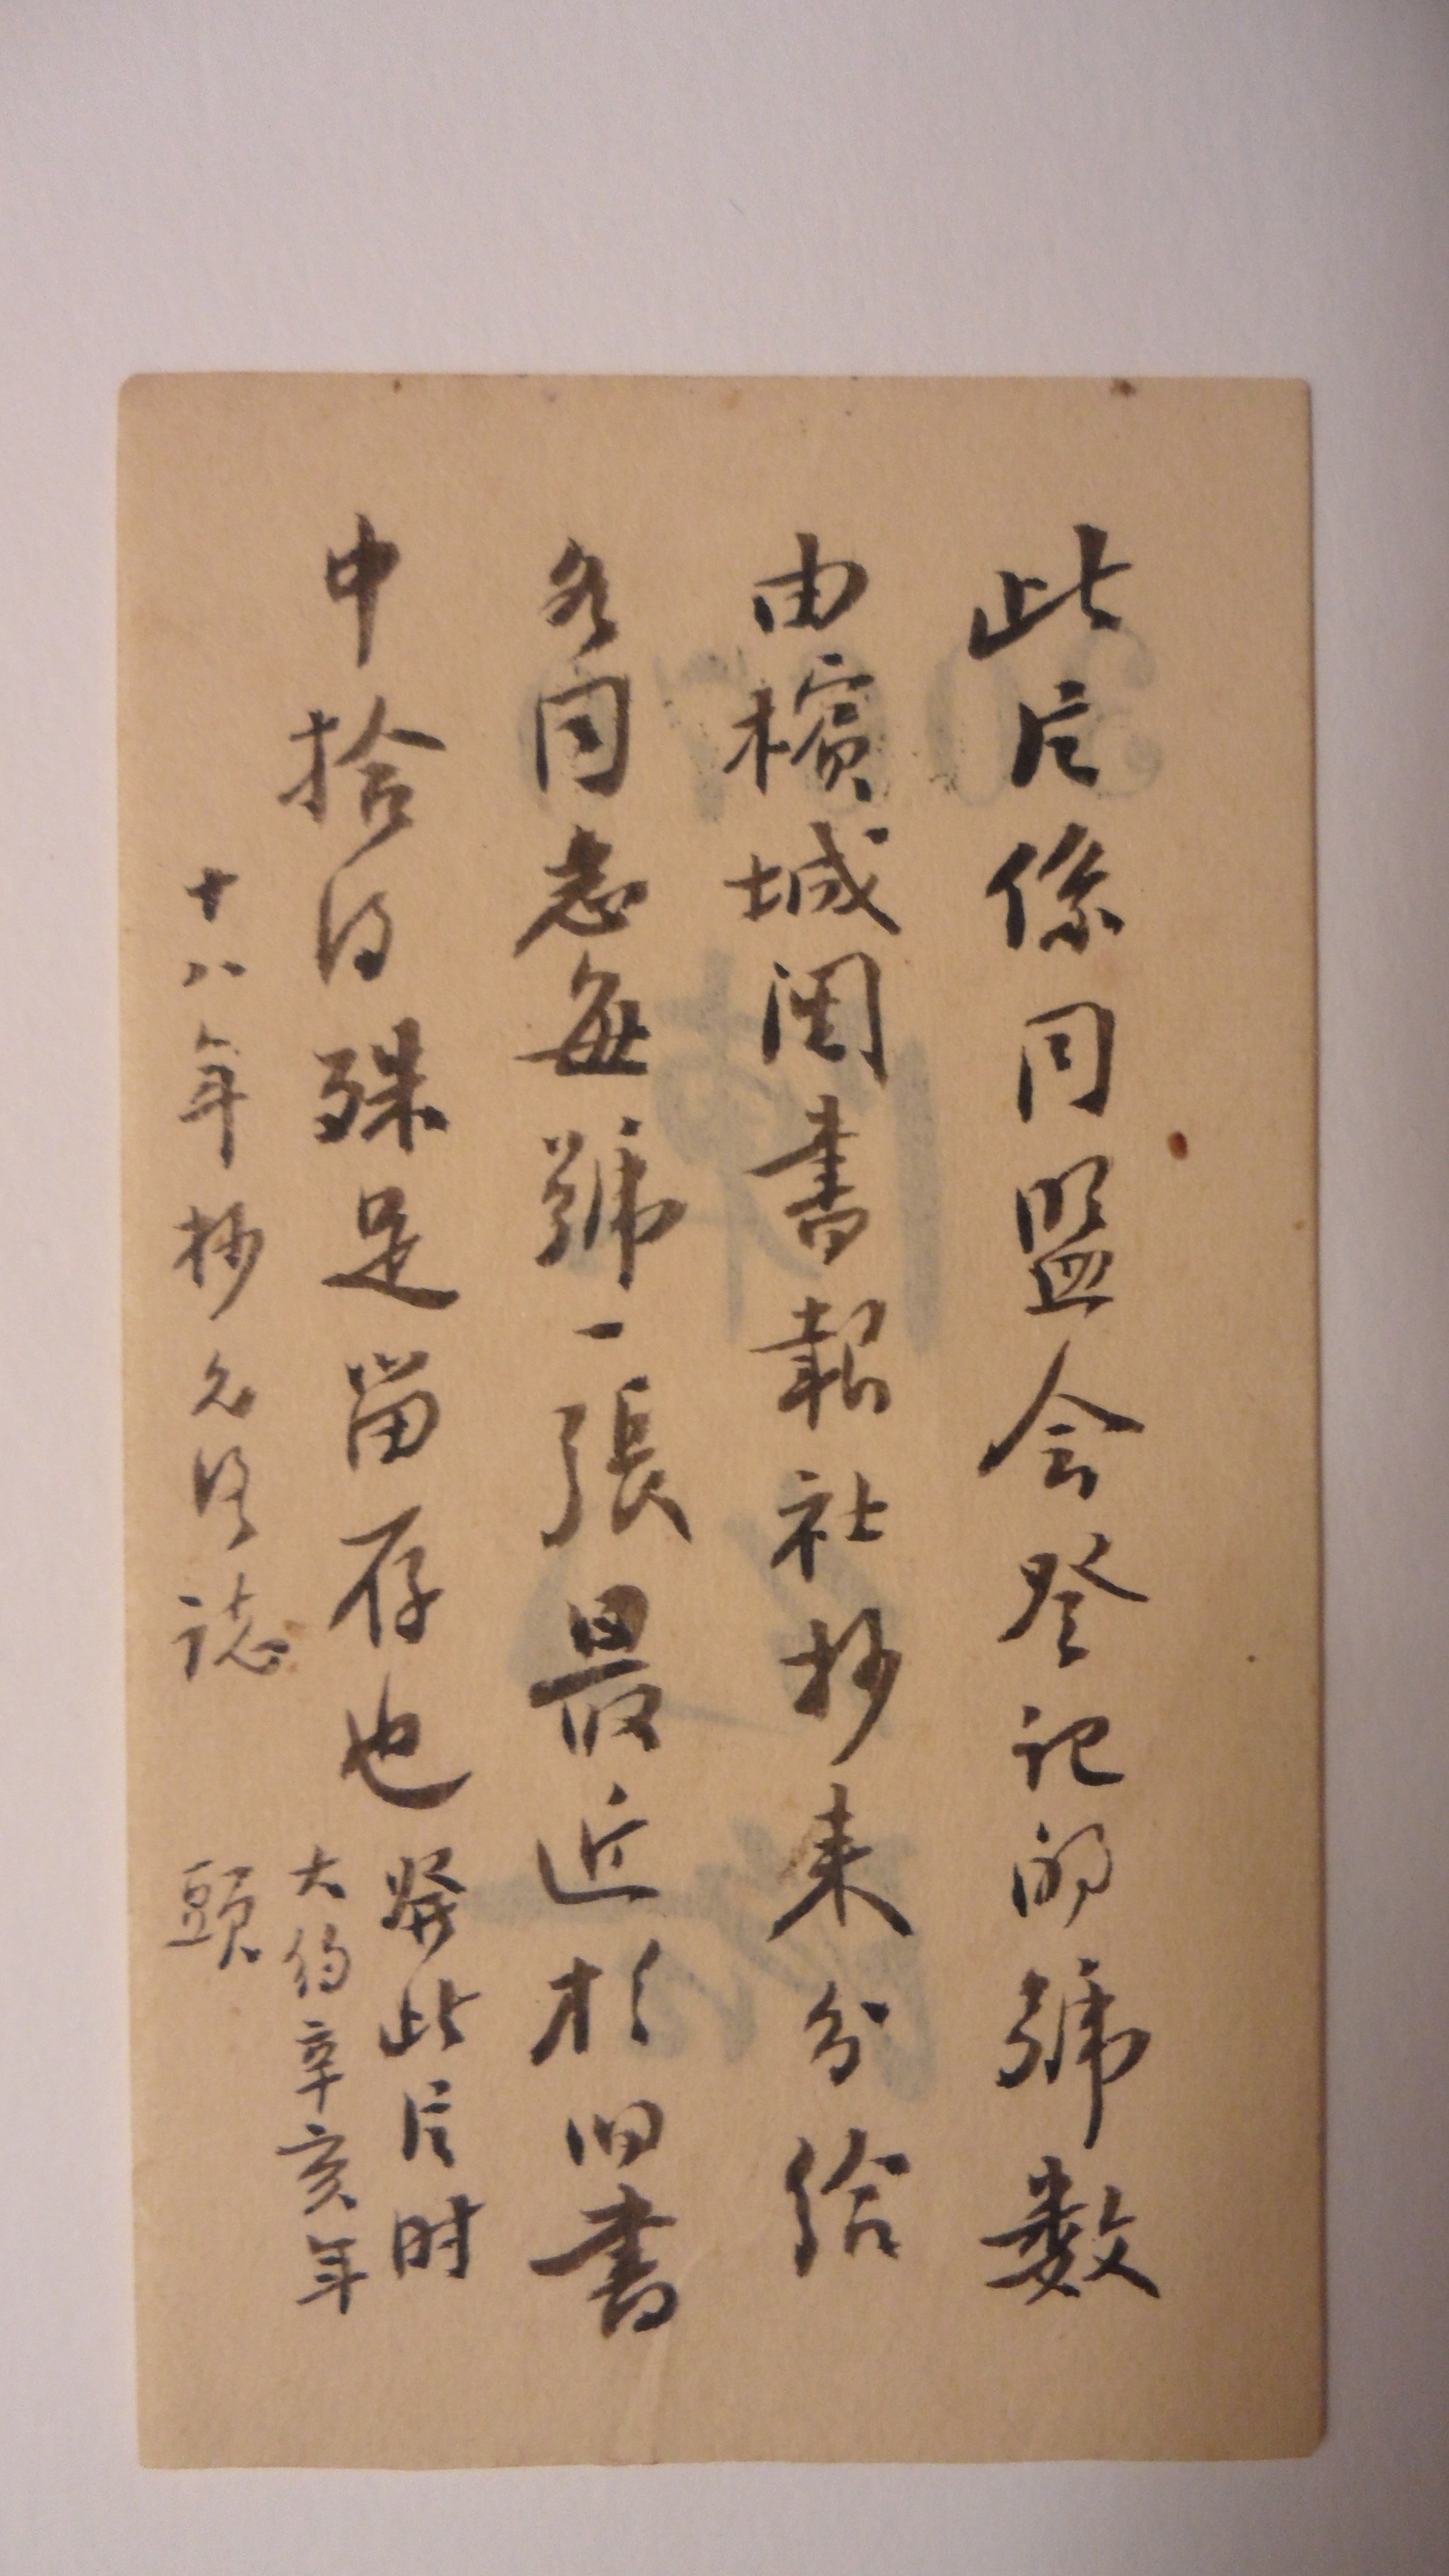 此片係同盟会登记的號数
由檳城閱書報社抄来分给
各同志每號一張最近於旧書
中拾得殊足留存也
發此片时
大约辛亥年
頭
十八年抄允誌